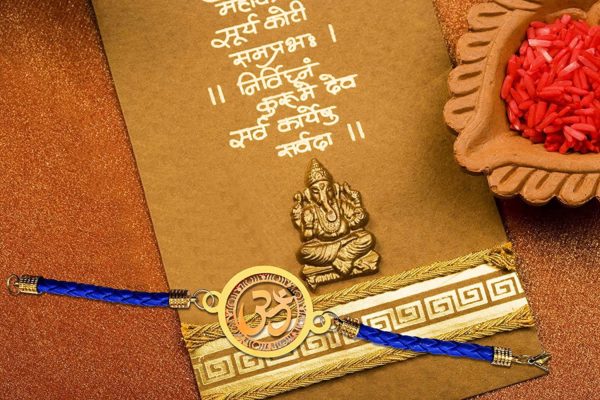 सूर्य कोटी
समप्रभः ।
॥ निर्विघ्नं
कुरुमे देव
सर्व कार्येषु
सर्वदा ॥
ॐ